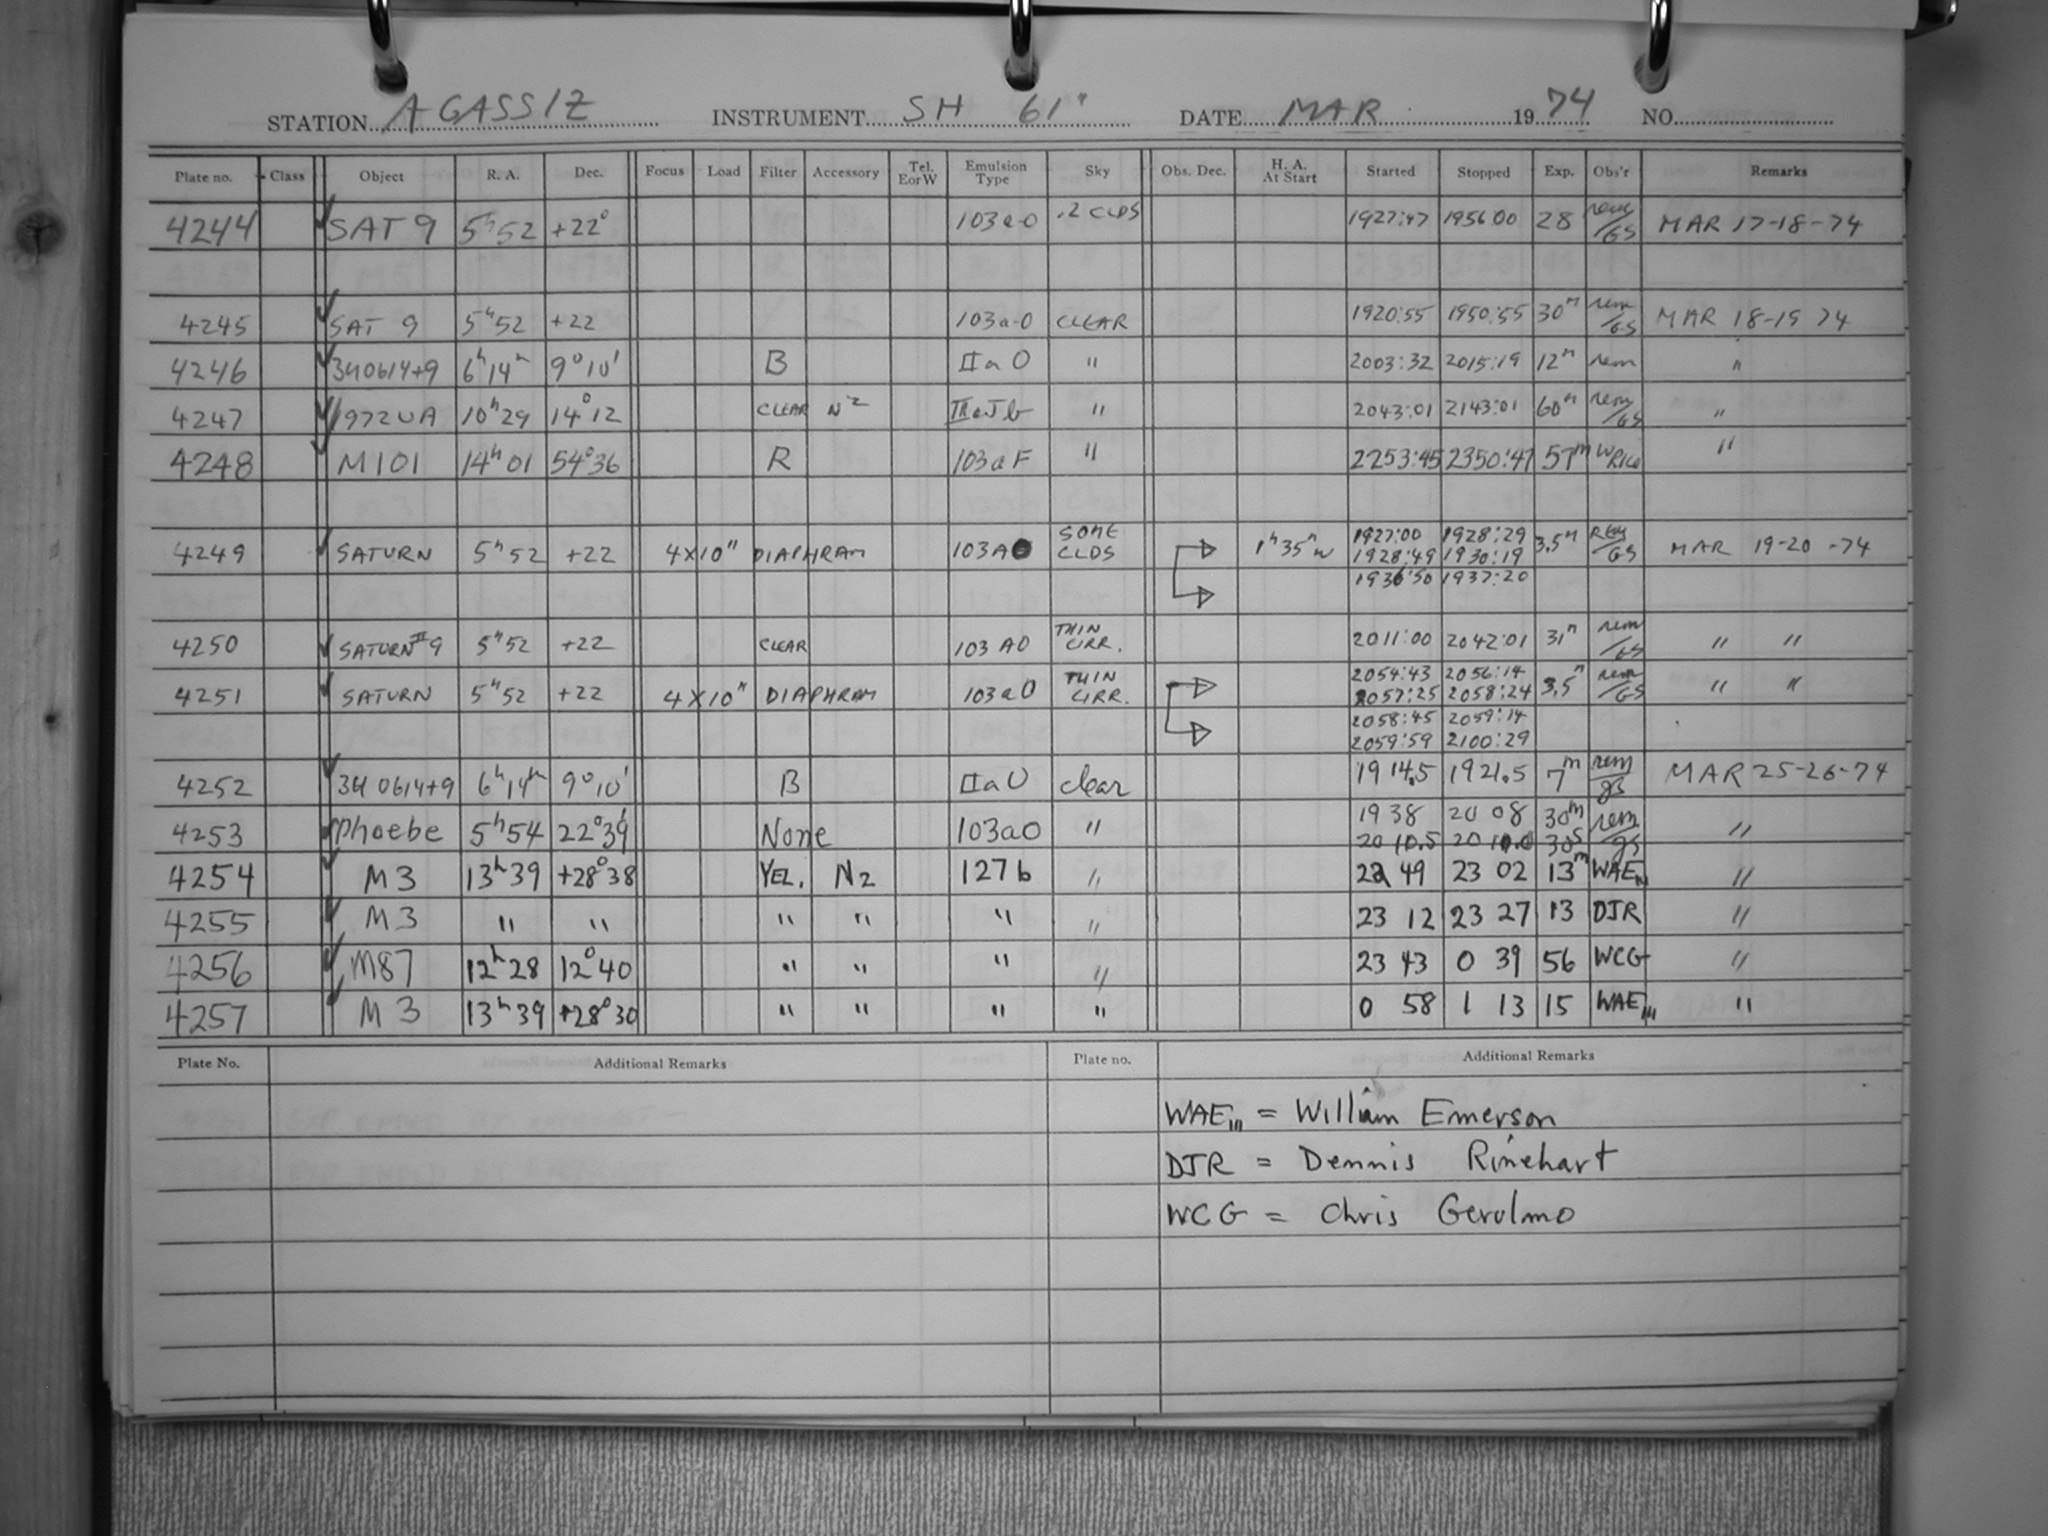 STATION AGASSIZ INSTRUMENT SH 61" DATE MAR 1974 NO.
Plate no. Class Object R. A. Dec. Focus Load Filter Accessory Tel. E or W Emulsion Type Sky Obs. Dec. H. A. At Start Started Stopped Exp. Obs'r Remarks
4244 SAT 9 5h52 +22° 103a-O .2 CLDS 1927:47 1956:00 28 rem/GS MAR 17-18-74
4245 SAT 9 5h52 +22 103a-O CLEAR 1920:55 1950:55 30m rem/GS MAR 18-19 74
4246 3U0614+9 6h14m 9°10' B IIaO " 2003:32 2015:19 12m rem "
4247 1972UA 10h29 14°12 CLEAR N2 IIIaJb " 2043:01 2143:01 60m rem/GS "
4248 M101 14h01 54°36 R 103aF " 2253:45 2350:47 57m WRice "
4249 SATURN 5h52 +22 4x10" DIAPHRAM 103AO SOME CLDS 1h35mW 1927:00 1928:29 3.5m REM/GS MAR 19-20-74
1928:49 1930:19
1936:50 1937:20
4250 SATURN #9 5h52 +22 CLEAR 103AO THIN CIRR. 2011:00 2042:01 31m rem/GS " "
4251 SATURN 5h52 +22 4x10" DIAPHRAM 103aO THIN CIRR. 2054:43 2056:14 3.5m rem/GS " "
2057:25 2058:24
2058:45 2059:14
2059:59 2100:29
4252 3U0614+9 6h14m 9°10' B IIaO clear 1914.5 1921.5 7m rem/gs MAR 25-26-74
4253 Phoebe 5h54 22°39' None 103aO " 19 38 20 08 30m rem/gs "
20 10.5 30s
4254 M3 13h39 +28°38 YEL. N2 127b " 22 49 23 02 13m WAE III "
4255 M3 " " " " " " 23 12 23 27 13 DJR "
4256 M87 12h28 12°40 " " " " 23 43 0 39 56 WCG "
4257 M3 13h39 +28°30 " " " " 0 58 1 13 15 WAE III "
Plate No. Additional Remarks Plate no. Additional Remarks
WAE III = William Emerson
DJR = Dennis Rinehart
WCG = Chris Gerolmo